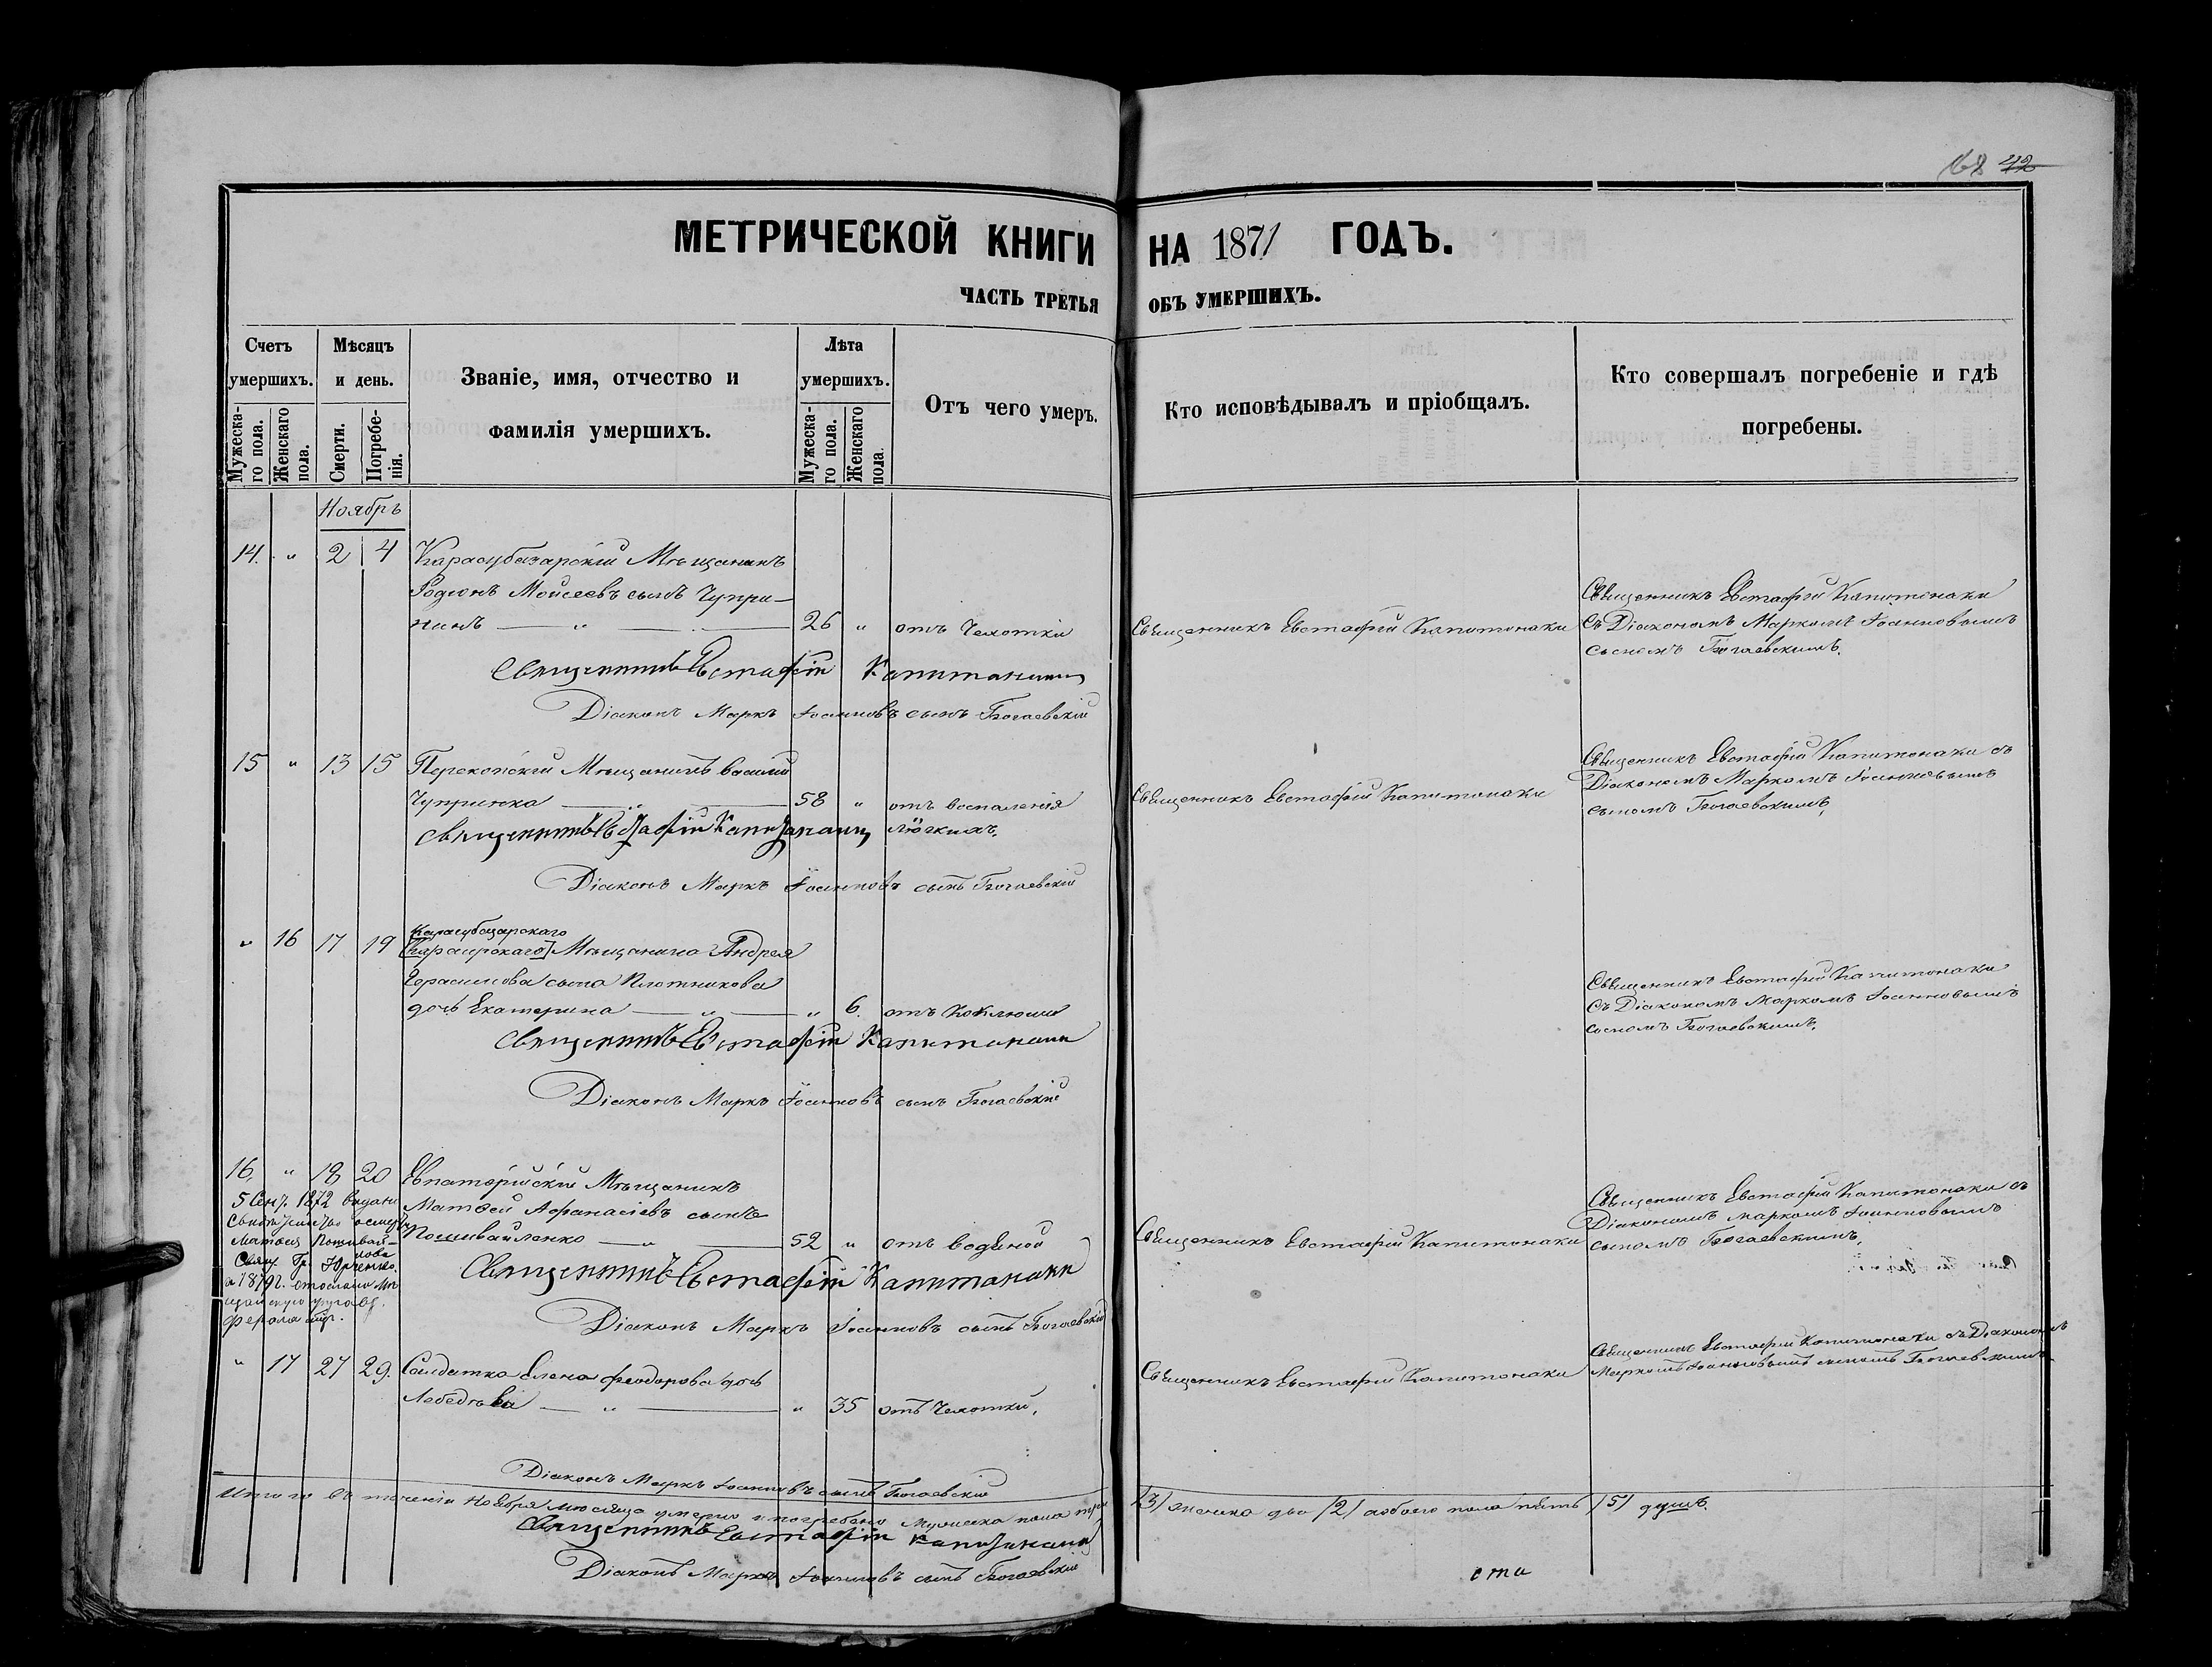 68 42
МЕТРИЧЕСКОЙ КНИГИ НА 1871 ГОДЪ.
ЧАСТЬ ТРЕТЬЯ ОБЪ УМЕРШИХЪ.
Счетъ умершихъ.
Мужеска-го пола.
Женскаго пола.
Мѣсяцъ и день.
Смерти.
Погребе-нія.
Званіе, имя, отчество и
фамилія умершихъ.
Лѣта умершихъ.
Мужеска-го пола.
Женскаго пола.
Отъ чего умеръ.
Кто исповѣдывалъ и пріобщалъ.
Кто совершалъ погребеніе и гдѣ
погребены.
Ноябрь
14. " 2 4 Карасубазарскій Мѣщанинъ
Родіонъ Моисеевъ сынъ Чупри-
нинъ — " — 26 " отъ Чахотки
Священникъ Евстафій Капитонаки
Священникъ Евстафій Капитонаки
съ Діакономъ Маркомъ Іоанновымъ
сыномъ Богаевскимъ.
Священникъ Евстафій Капитанаки
Діаконъ Маркъ Іоанновъ сынъ Богаевскій
15 " 13 15 Перекопскій Мѣщанинъ Василій
Чупринка — " — 58 " отъ воспаленія
легкихъ.
Священникъ Евстафій Капитонаки
Священникъ Евстафій Капитонаки съ
Діакономъ Маркомъ Іоанновымъ
сыномъ Богаевскимъ,
Священникъ Евстафій Капитанаки
Діаконъ Маркъ Іоанновъ сынъ Богаевскій
Карасубазарскаго
" 16 17 19 Мѣщанина Андрея
Герасимова сына Плотникова
дочь Екатерина — " — " 6. отъ Коклюша
Священникъ Евстафій Капитонаки
съ Діакономъ Маркомъ Іоанновымъ
сыномъ Богаевскимъ.
Священникъ Евстафій Капитанаки
Діаконъ Маркъ Іоанновъ сынъ Богаевскій
16, " 18 20 Евпаторійскій Мѣщанинъ
Матѳей Аѳанасіевъ сынъ
Пошивайленко — " — 52 " отъ водяной
Священникъ Евстафій Капитонаки
Священникъ Евстафій Капитонаки съ
Діакономъ Маркомъ Іоанновымъ
сыномъ Богаевскимъ,
5 Сент. 1872 выдано
Свящ. Гр. Юрченко.
Священникъ Евстафій Капитанаки
Діаконъ Маркъ Іоанновъ сынъ Богаевскій
" 17 27 29. Солдатка Елена Феодорова дочь
Лебедева — " — " 35 отъ Чахотки,
Священникъ Евстафій Капитонаки
Священникъ Евстафій Капитонаки съ Діакономъ
Маркомъ Іоанновымъ сыномъ Богаевскимъ
Діаконъ Маркъ Іоанновъ сынъ Богаевскій
Итого въ теченіи Ноября мѣсяца умерло и погребено мужеска пола три /3/ женска два /2/ обоего пола пять /5/ душъ.
Священникъ Евстафій Капитанаки
Діаконъ Маркъ Іоанновъ сынъ Богаевскій
сти